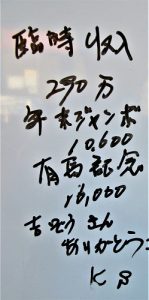 臨時収入
290万
年末ジャンボ
10,600
有馬記念
16,000
吉どうさん
ありがとう
K S